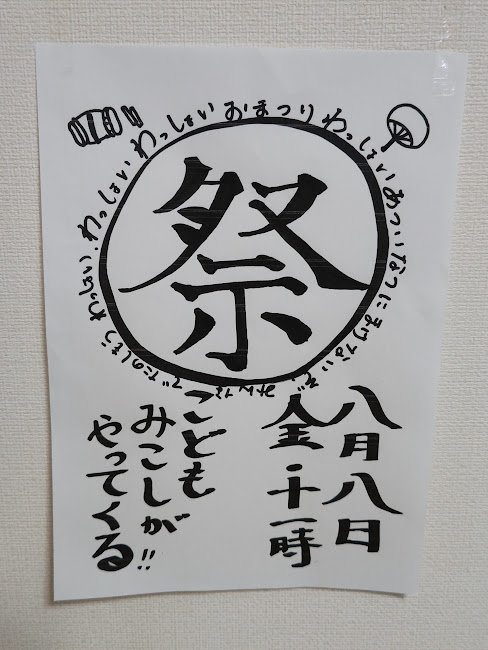 祭
わっしょい わっしょい おまつり わっしょい あついなつにまけないぞ みんなでたのしもう わっしょい
八月八日
金・十一時
こども
みこしが!!
やってくる